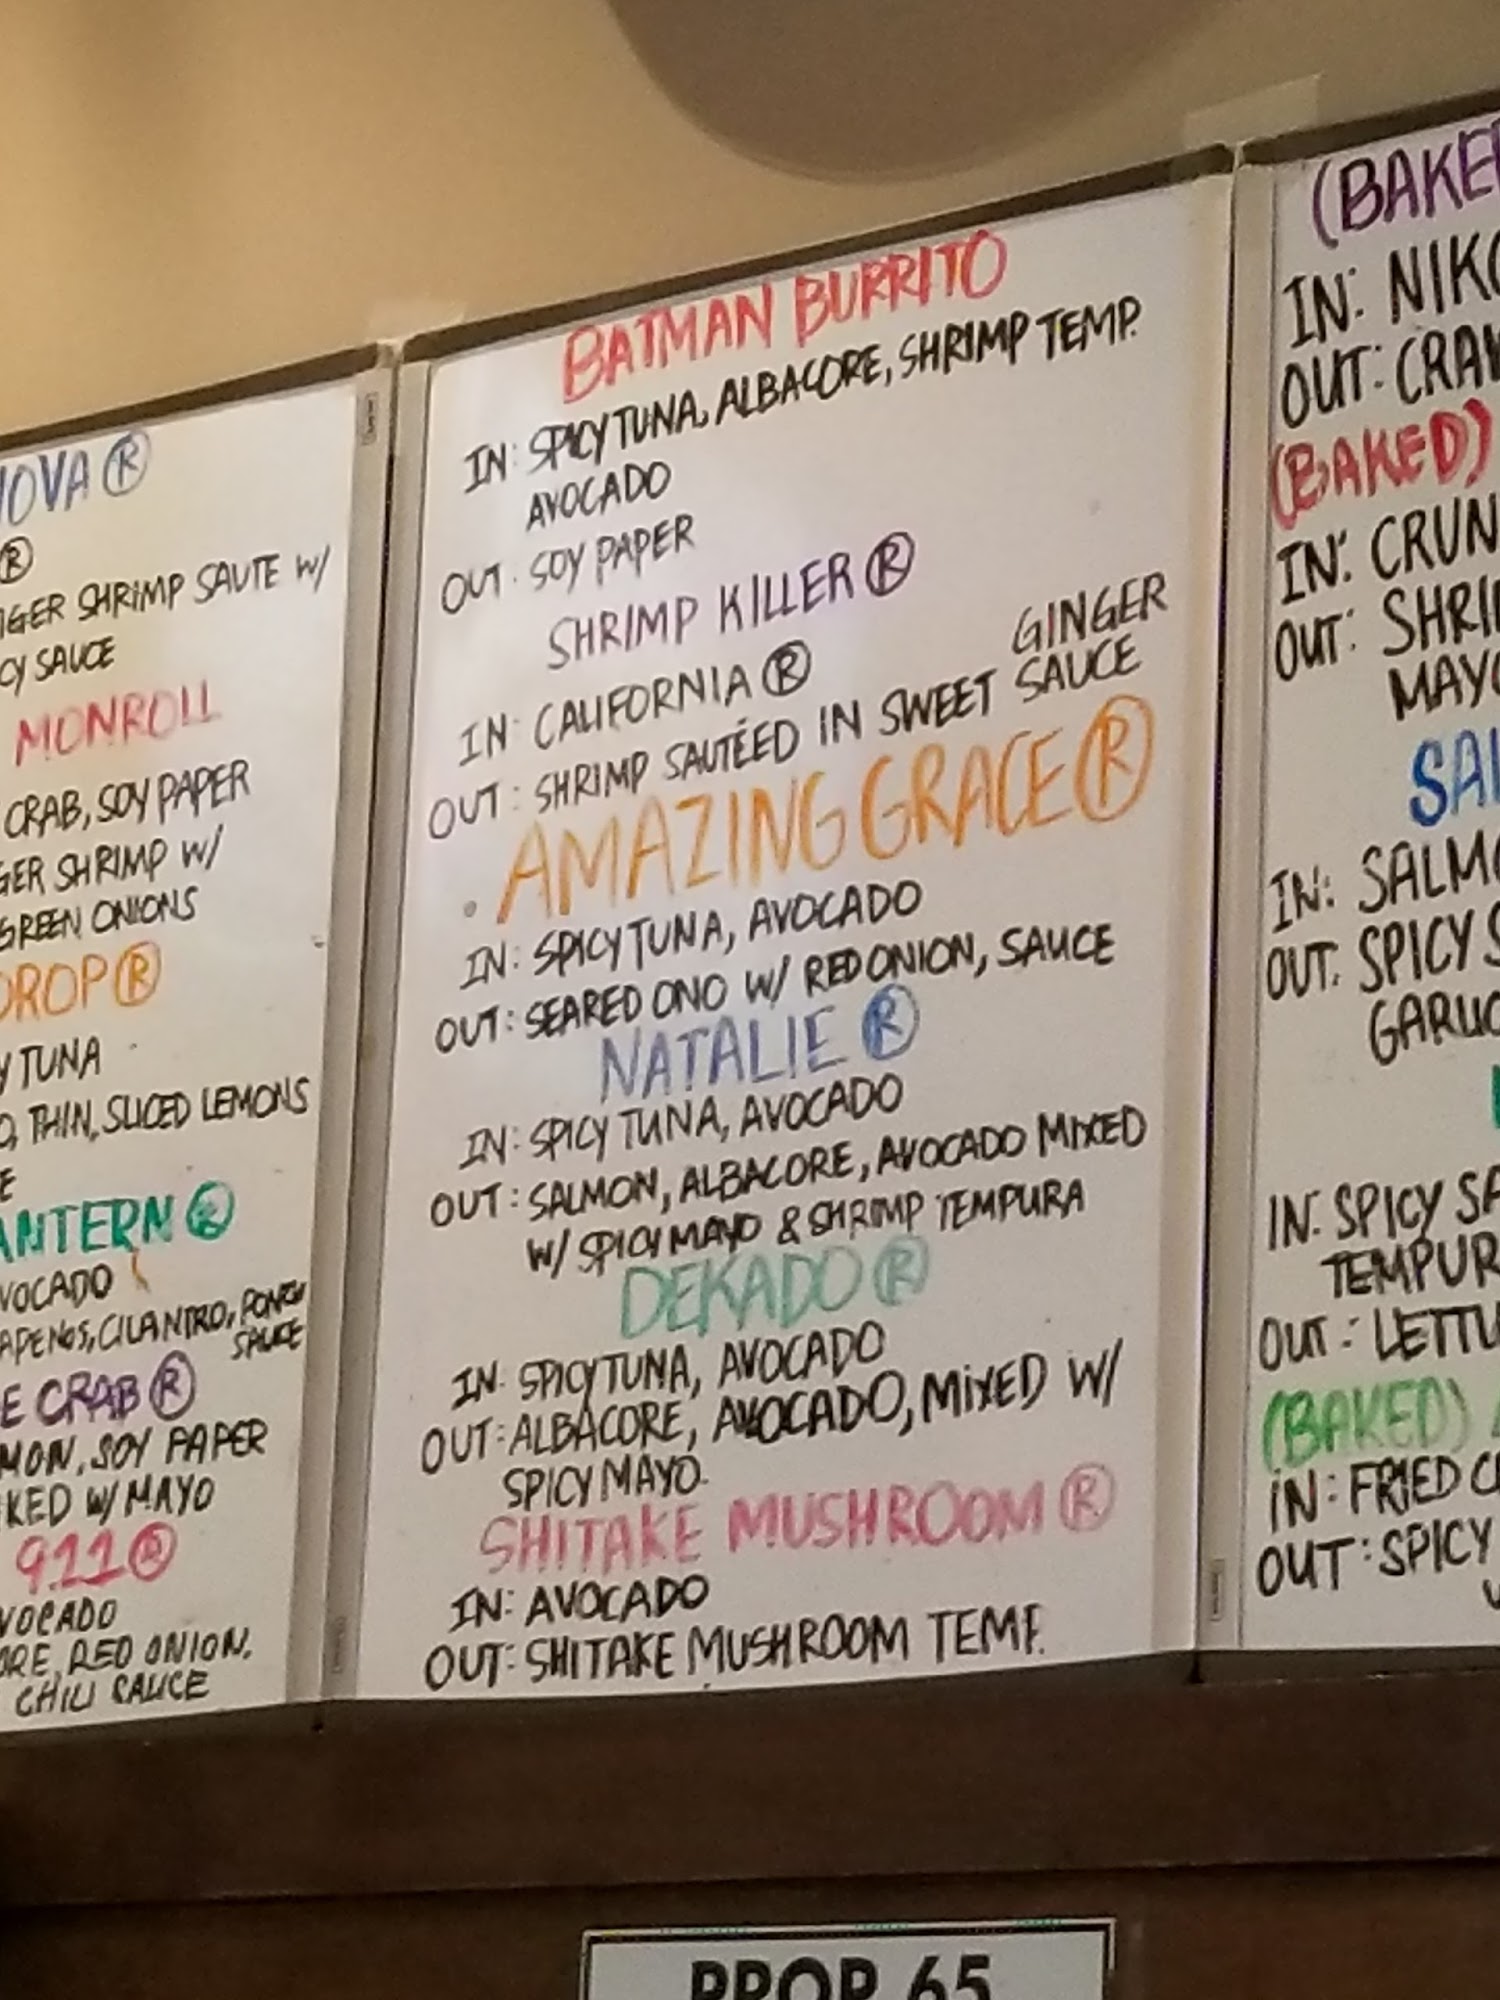 OVA Ⓡ
Ⓡ
SHRIMP SAUTE W/
SAUCE
MONROLL
CRAB, SOY PAPER
SHRIMP W/
GREEN ONIONS
DROP Ⓡ
TUNA
THIN, SLICED LEMONS
ANTERN Ⓡ
VOCADO
APENOS, CILANTRO, PONZU
SAUCE
E CRAB Ⓡ
MON, SOY PAPER
KED W/ MAYO
911 Ⓡ
VOCADO
ORE, RED ONION,
CHILI SAUCE
BATMAN BURRITO
IN: SPICY TUNA, ALBACORE, SHRIMP TEMP.
AVOCADO
OUT: SOY PAPER
SHRIMP KILLER Ⓡ
IN: CALIFORNIA Ⓡ
OUT: SHRIMP SAUTÉED IN SWEET GINGER
SAUCE
AMAZING GRACE Ⓡ
IN: SPICY TUNA, AVOCADO
OUT: SEARED ONO W/ RED ONION, SAUCE
NATALIE Ⓡ
IN: SPICY TUNA, AVOCADO
OUT: SALMON, ALBACORE, AVOCADO MIXED
W/ SPICY MAYO & SHRIMP TEMPURA
DEKADO Ⓡ
IN: SPICY TUNA, AVOCADO
OUT: ALBACORE, AVOCADO, MIXED W/
SPICY MAYO.
SHITAKE MUSHROOM Ⓡ
IN: AVOCADO
OUT: SHITAKE MUSHROOM TEMP.
(BAKE
IN: NIK
OUT: CRAW
(BAKED)
IN: CRUN
OUT: SHRI
MAYO
SAL
IN: SALMO
OUT: SPICY S
GARLIC
IN: SPICY SA
TEMPUR
OUT: LETTU
(BAKED)
IN: FRIED C
OUT: SPICY
PROP 65